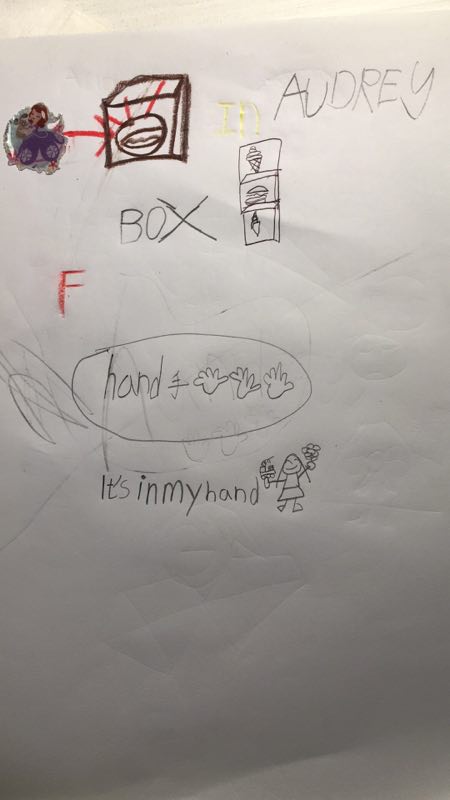 AUDREY
In
BOX
F
hand 手
It's in my hand